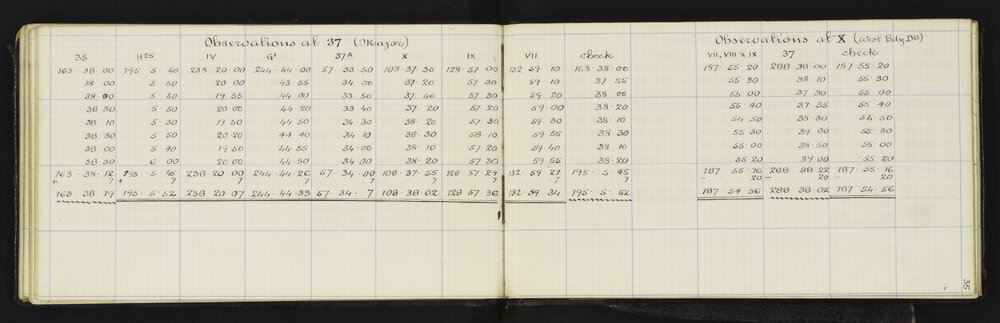 Observations at 37 (Major) Observations at X (West Bdy DB)
35 H25 IV G' 37A X IX VII check VII, VIII & IX 37 check
163·38 00 195 5 40 238·20·00 244·44·00 57 33 50 108·37·30 128 57 00 132 59 10 163·38·00 187·55·20 288 38·00 187 55 20
38 00 5 50 20 00 43 55 34 00 37 20 57 30 59 10 37 55 55 30 38 10 55 30
38 00 5 40 19 55 44 00 33 50 37 40 57 30 59 20 38 00 55 00 37 30 55 00
38 30 5 50 20 00 44 20 33 40 37 20 57 20 59 00 38 20 55 40 37 55 55 40
38 10 5 30 19 50 44 50 34 30 38 20 57 30 59 30 38 10 54 50 38 30 54 50
38 30 5 50 20 20 44 40 34 10 38 30 58 10 59 55 38 30 55 30 39 00 55 30
38 00 5 40 19 50 44 55 34 00 38 10 57 20 59 40 38 10 55 00 38 50 55 00
38 30 6 00 20 00 44 50 34 00 38 20 57 30 59 55 38 20 55 20 39 00 55 20
163·38·12 195 5 45 238 20 00 244·44 26 57 34·00 108·37 55 128 57 29 132 59 27 195·5·45 187 55 16 288 38 22 187·55·16
+ 7 + 7 7 7 7 7 7 7 7 - 20 - 20 20
163·38·19 195·5·52 238 20 07 244·44·33 57·34·7 108·38·02 128 57 36 132·59·34 195·5·52 187·54 56 288 38 02 187 54 56
35